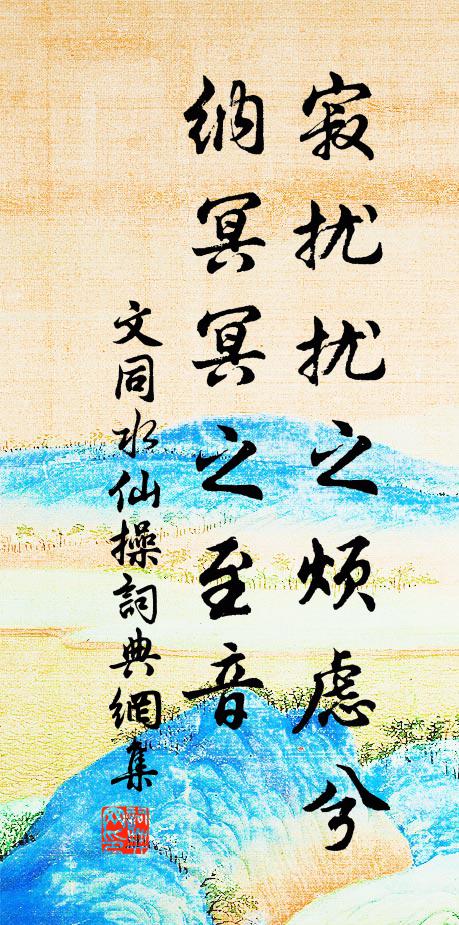 寂扰扰之烦虑兮
纳冥冥之至音
文同水仙操詞典網集